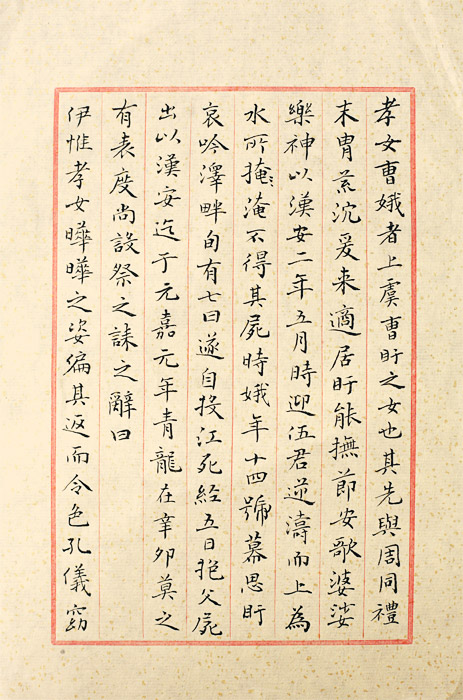 孝女曹娥者上虞曹盱之女也其先與周同禮
末胄荒沈爰来適居盱能撫節安歌婆娑
樂神以漢安二年五月時迎伍君逆濤而上為
水所掩淹不得其屍時娥年十四號慕思盱
哀吟澤畔旬有七日遂自投江死經五日抱父屍
出以漢安迄于元嘉元年青龍在辛卯莫之
有表度尚設祭之誄之辭曰
伊惟孝女曄曄之姿偏其返而令色孔儀窈